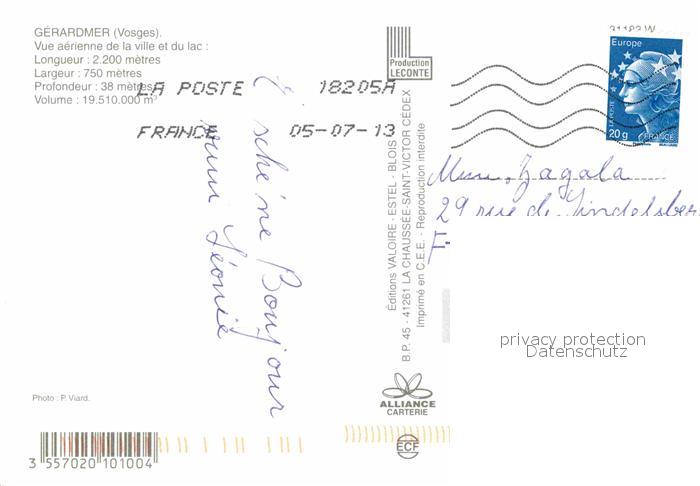 GÉRARDMER (Vosges).
Vue aérienne de la ville et du lac :
Longueur : 2.200 mètres
Largeur : 750 mètres
Profondeur : 38 mètres
Volume : 19.510.000 m³
LA POSTE 18205A
FRANCE 05-07-13
31183 W
Europe
LA POSTE
20g FRANCE
Production
LECONTE
É schéne Bonjour
vum Léonie
Éditions VALOIRE - ESTEL - BLOIS
B.P. 45 - 41261 LA CHAUSSÉE-SAINT-VICTOR CÉDEX
Imprimé en C.E.E. - Reproduction interdite
Mme Zagala
29 rue de Lindelsber
F-
privacy protection
Datenschutz
Photo : P. Viard.
ALLIANCE
CARTERIE
ECF
3 557020 101004